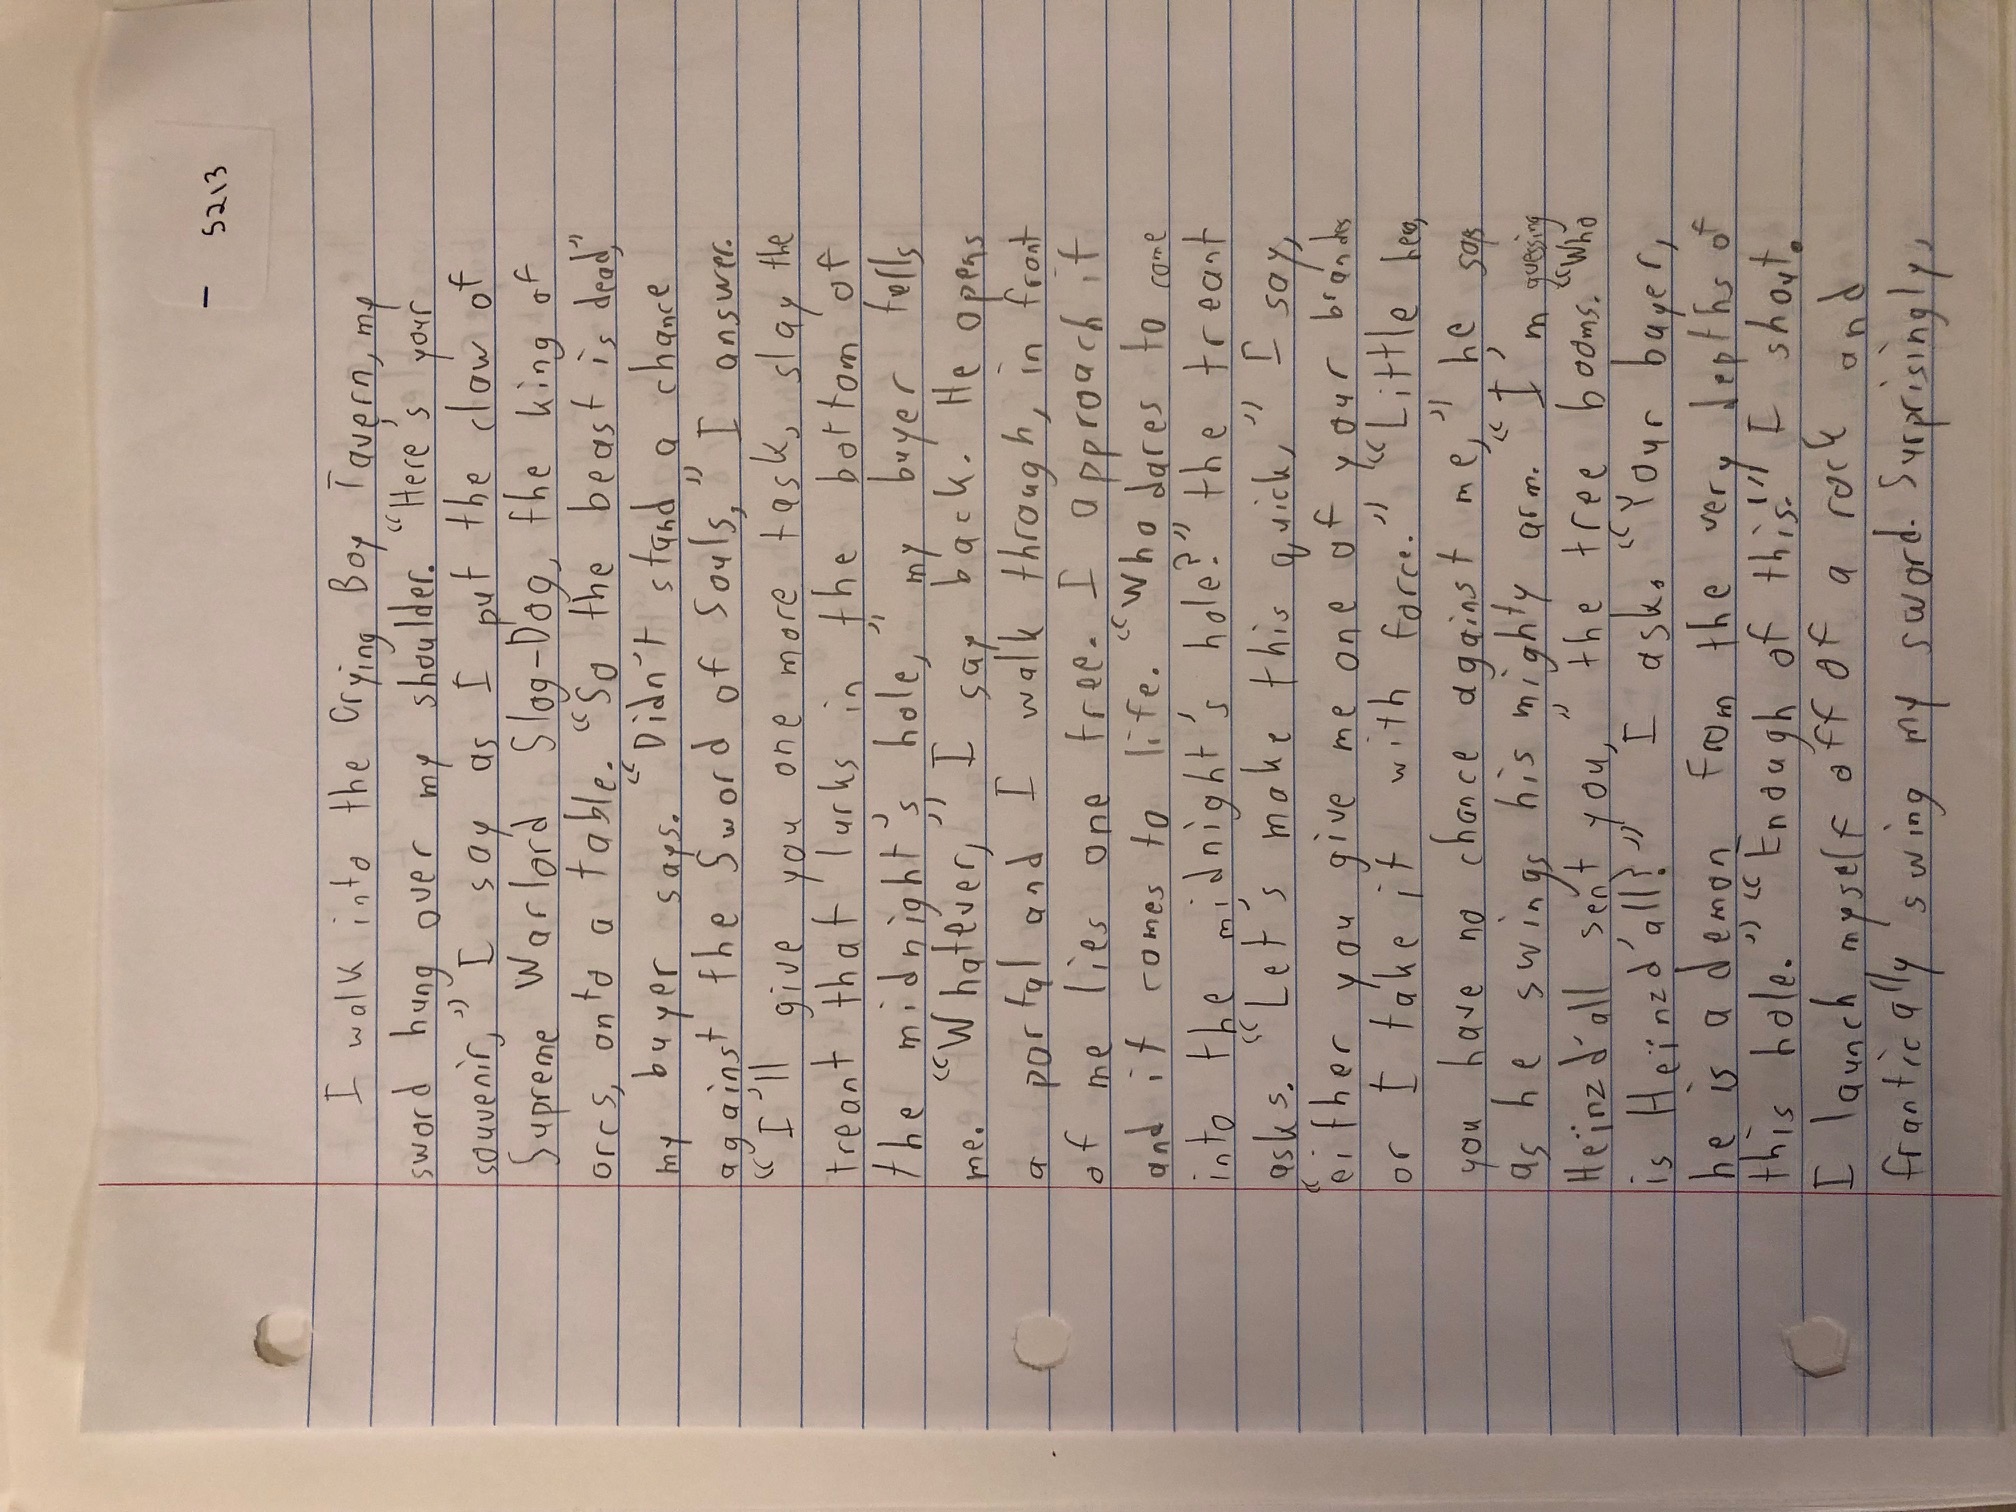 - 5213
I walk into the Crying Boy Tavern, my
sword hung over my shoulder. “Here's your
souvenir,” I say as I put the claw of
Supreme Warlord Slog-Dog, the king of
orcs, onto a table. “So the beast is dead,”
my buyer says. “Didn't stand a chance
against the Sword of Souls,” I answer.
“I'll give you one more task, slay the
treant that lurks in the bottom of
the midnight's hole,” my buyer tells
me. “Whatever,” I say back. He opens
a portal and I walk through, in front
of me lies one tree. I approach it
and it comes to life. “Who dares to come
into the midnight's hole?” the treant
asks. “Let's make this quick,” I say,
“either you give me one of your branches
or I take it with force.” “Little hero,
you have no chance against me,” he says
as he swings his mighty arm. “I'm guessing
Heïnzd'all sent you,” the tree booms. “Who
is Heïnzd'all?” I ask. “Your buyer,
he is a demon from the very depths of
this hole.” “Enough of this!” I shout.
I launch myself off of a rock and
frantically swing my sword. Surprisingly,